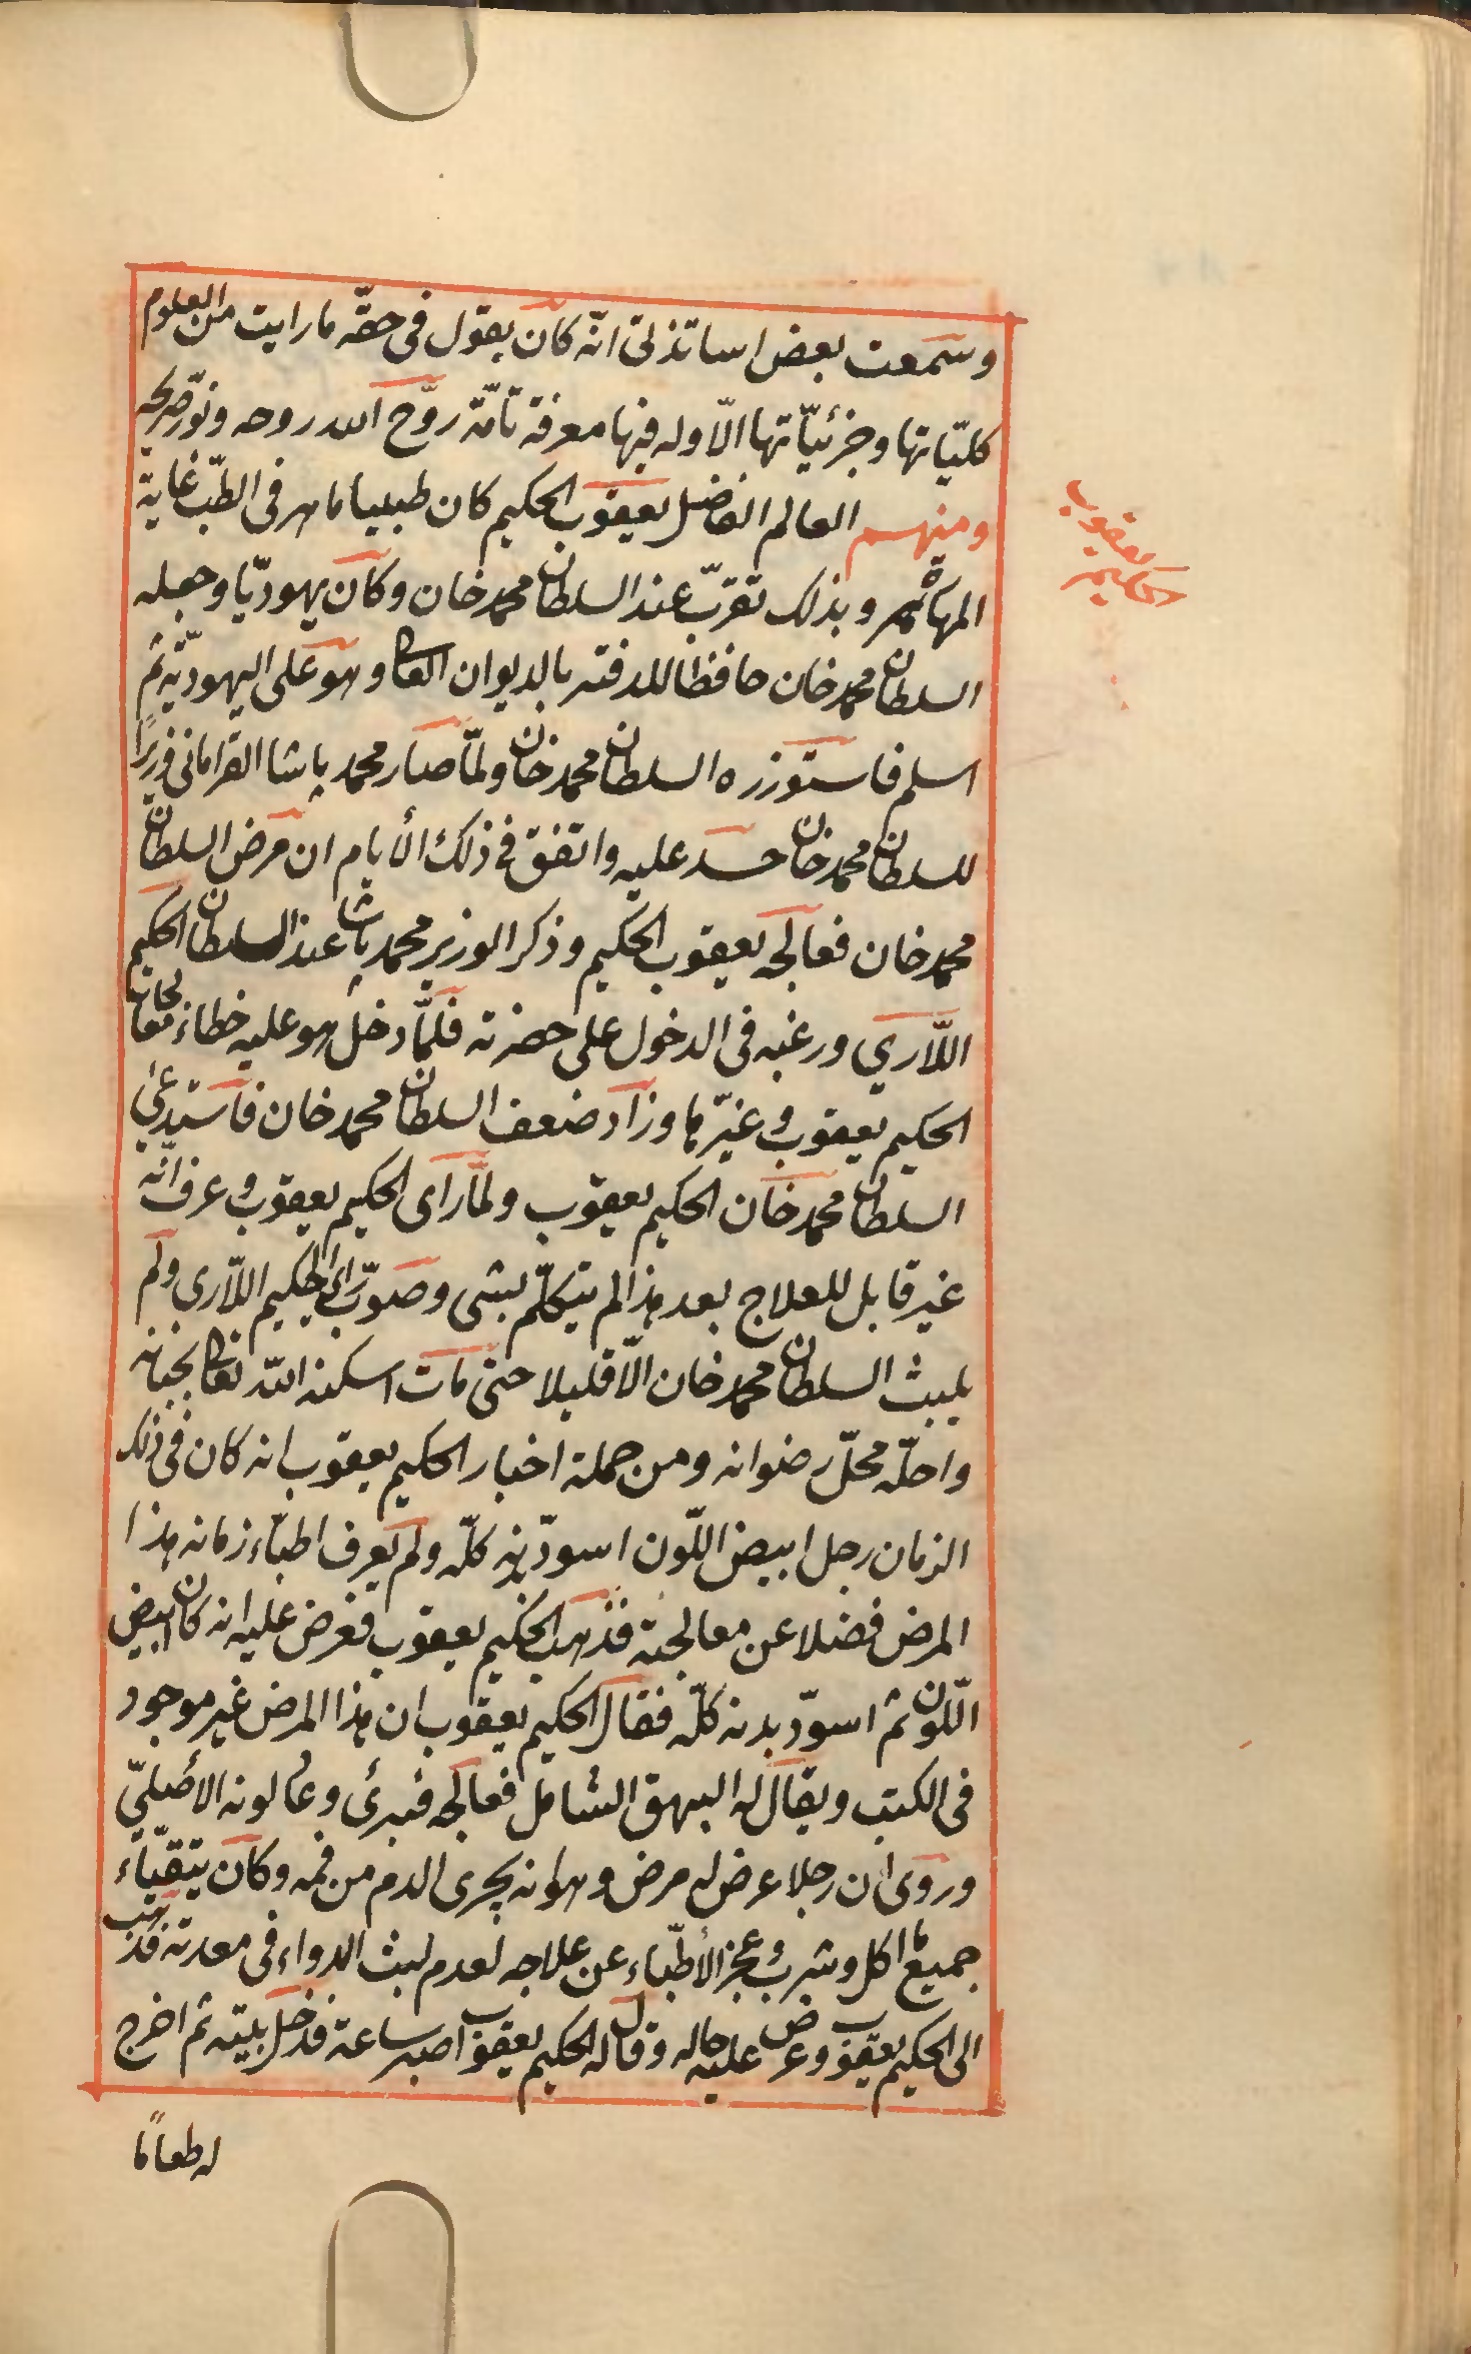 وسمعت بعض اساتذتى انّه كان يقول فى حقّه ما رايت من العلوم
كلّيّاتها وجزئيّاتها الّا وله فيها معرفة تامّة روّح الله روحه ونوّر ضريحه
ومنهم العالم الفاضل يعقوب الحكيم كان طبيبا ماهر فى الطبّ غاية
المهارة وبذلك تقرّب عند السلطان محمد خان وكان يهوديّا وجعله
السلطان محمد خان حافظا للدفتر بالديوان العالى وهو على اليهوديّة ثم
اسلم فاستوزره السلطان محمد خان ولمّا صار محمد پاشا القرامانى وزيرًا
للسلطان محمد خان حسد عليه واتفق فى ذلك الأيام ان مرض السلطان
محمد خان فعالجه يعقوب الحكيم وذكر الوزير محمد پاشا عند السلطان الحكيم
اللّارى ورغبه فى الدخول على حضرته فلمّا دخل هو عليه خطاء معالجات
الحكيم يعقوب وغيّرها وزاد ضعف السلطان محمد خان فاستدعى
السلطان محمد خان الحكيم يعقوب ولمّا راى الحكيم يعقوب وعرف انّه
غير قابل للعلاج بعد هذا لم يتكلّم بشى وصوّب راى الحكيم اللّارى ولم
يلبث السلطان محمد خان الّا قليلا حتى مات اسكنه الله تعالى بجنانه
واحلّه محلّ رضوانه ومن جملة اخبار الحكيم يعقوب انه كان فى ذلك
الزمان رجل ابيض اللّون اسودّ بدنه كلّه ولم يعرف اطبّاء زمانه هذا
المرض فضلا عن معالجته فذهب الحكيم يعقوب فعرض عليه انه كان ابيض
اللّون ثم اسودّ بدنه كلّه فقال الحكيم يعقوب ان هذا المرض غير موجود
فى الكتب ويقال له البهق الشامل فعالجه فبرئ وعاد لونه الأصليّ
وروى ان رجلا عرض له مرض وهو انه يجرى الدم من فمه وكان يتقيّاء
جميع ما اكل وشرب وعجز الأطبّاء عن علاجه لعدم لبث الدواء فى معدته فذهب
الى الحكيم يعقوب وعرض عليه حاله وقال له الحكيم يعقوب اصبر ساعة فدخل بيته ثم اخرج
له طعامًا
الحكيم يعقوب